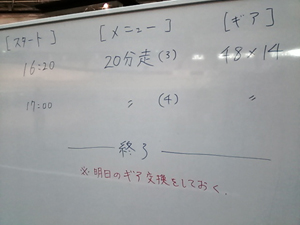 [スタート] [メニュー] [ギア]
16:20 20分走(3) 48×14
17:00 〃 (4) 〃
終了
※明日のギア交換をしておく.